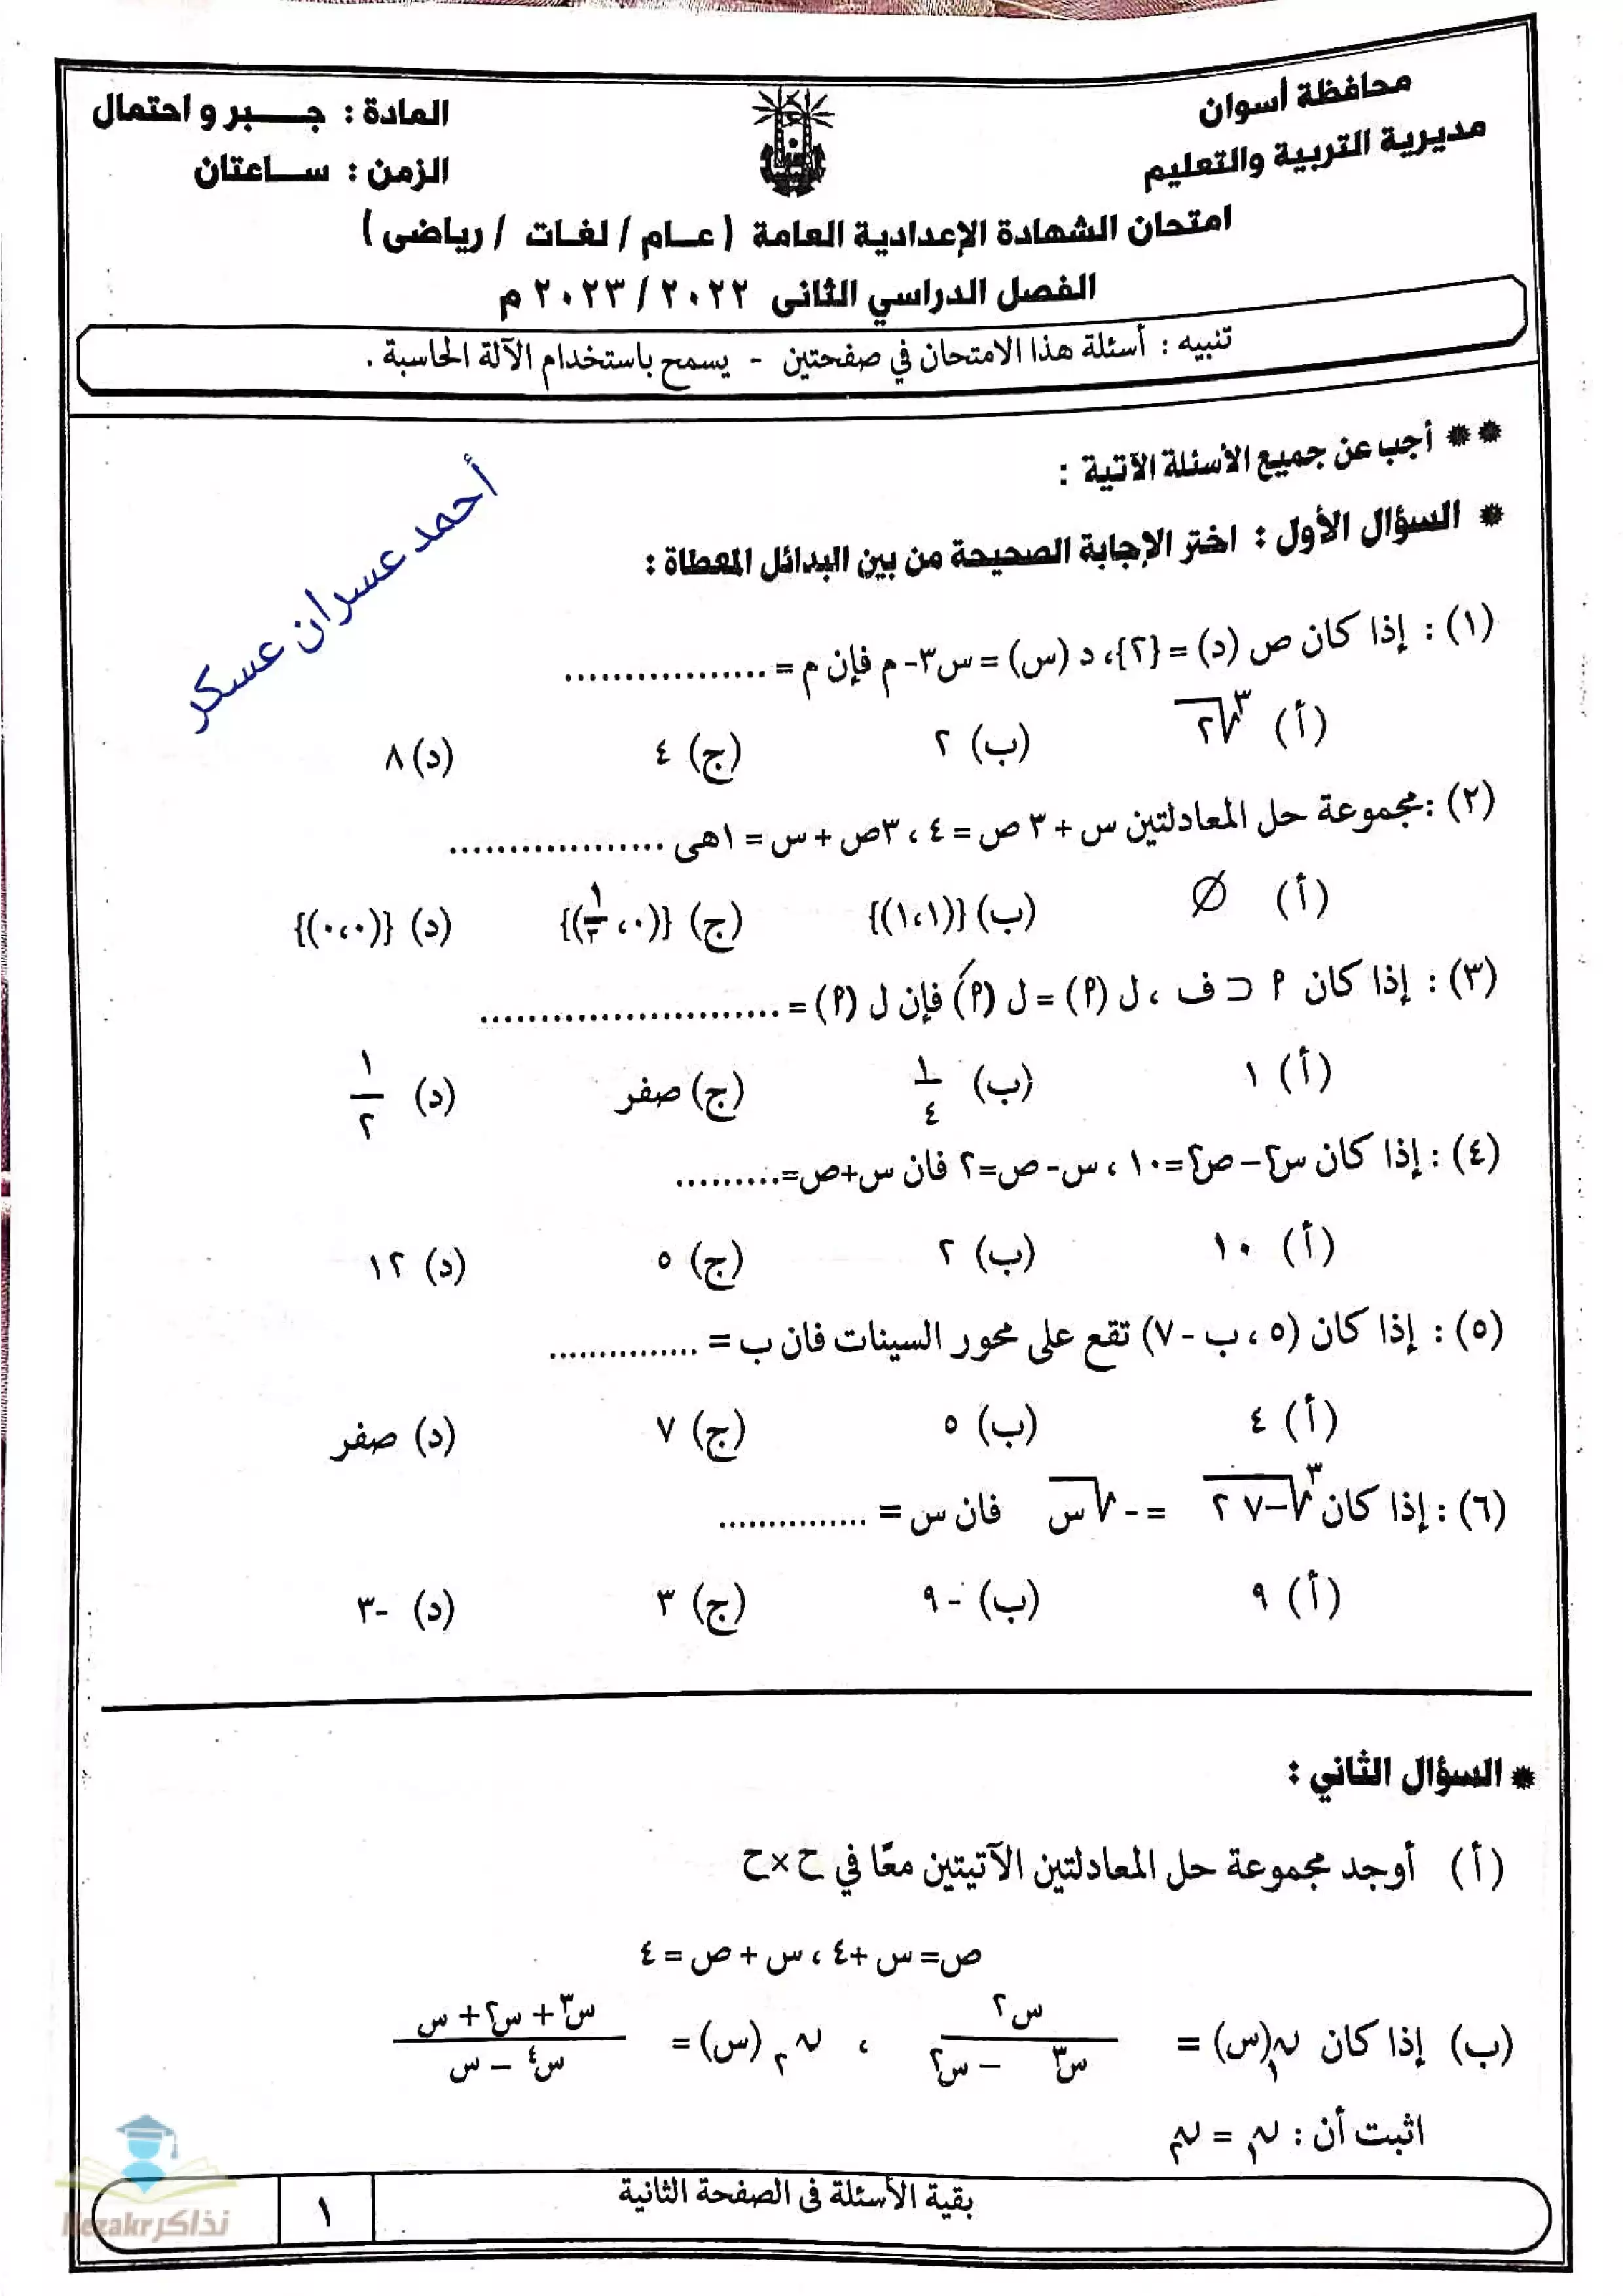 محافظة أسوان
مديرية التربية والتعليم
المادة : جـــبر و احتمال
الزمن : ســـاعتان
امتحان الشهادة الإعدادية العامة ( عــام / لغــات / رياضى )
الفصل الدراسي الثانى ٢٠٢٢ / ٢٠٢٣ م
تنبيه : أسئلة هذا الامتحان في صفحتين - يسمح باستخدام الآلة الحاسبة .
** أجب عن جميع الأسئلة الآتية :
أحمد عسران عسكر
* السؤال الأول : اختر الإجابة الصحيحة من بين البدائل المعطاة :
(١) : إذا كان ص (د) = {٢}، د (س) = س٣- م فإن م = .................
(أ) ٣√٢ (ب) ٢ (ج) ٤ (د) ٨
(٢) :مجموعة حل المعادلتين س + ٣ ص = ٤ ، ٣ص + س = ١هى ..................
(أ) ∅ (ب) {(١،١)} (ج) {(٠، ١/٣)} (د) {(٠،٠)}
(٣) : إذا كان P ⊂ ف ، ل (P) = ل (P/) فإن ل (P) = .........................
(أ) ١ (ب) ١/٤ (ج) صفر (د) ١/٢
(٤) : إذا كان س٢ – ص٢=١٠ ، س- ص=٢ فان س+ص=.........
(أ) ١٠ (ب) ٢ (ج) ٥ (د) ١٢
(٥) : إذا كان (٥ ، ب - ٧) تقع على محور السينات فان ب = ...............
(أ) ٤ (ب) ٥ (ج) ٧ (د) صفر
(٦) : إذا كان ٣√–٢٧ = -√س فان س = ...............
(أ) ٩ (ب) -٩ (ج) ٣ (د) -٣
* السؤال الثاني :
(أ) أوجد مجموعة حل المعادلتين الآتيتين معًا في ح×ح
ص= س +٤ ، س + ص = ٤
(ب) إذا كان ن١(س) = س٢ / س٣ – س٢ ، ن٢ (س) = س٣ + س٢ + س / س٤ – س
اثبت أن : ن١ = ن٢
بقية الأسئلة فى الصفحة الثانية
١
نذاكر Nezakr